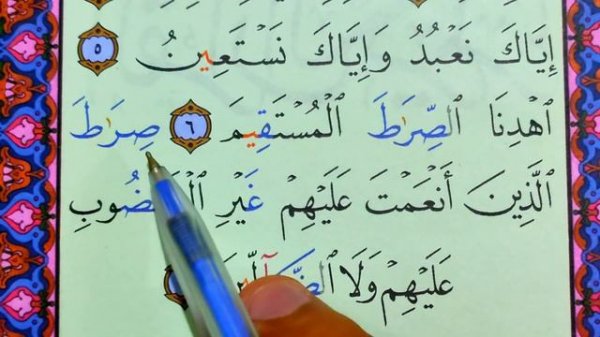 إِيَّاكَ نَعْبُدُ وَإِيَّاكَ نَسْتَعِينُ ٥
ٱهْدِنَا ٱلصِّرَٰطَ ٱلْمُسْتَقِيمَ ٦ صِرَٰطَ
ٱلَّذِينَ أَنْعَمْتَ عَلَيْهِمْ غَيْرِ
عَلَيْهِمْ وَلَا